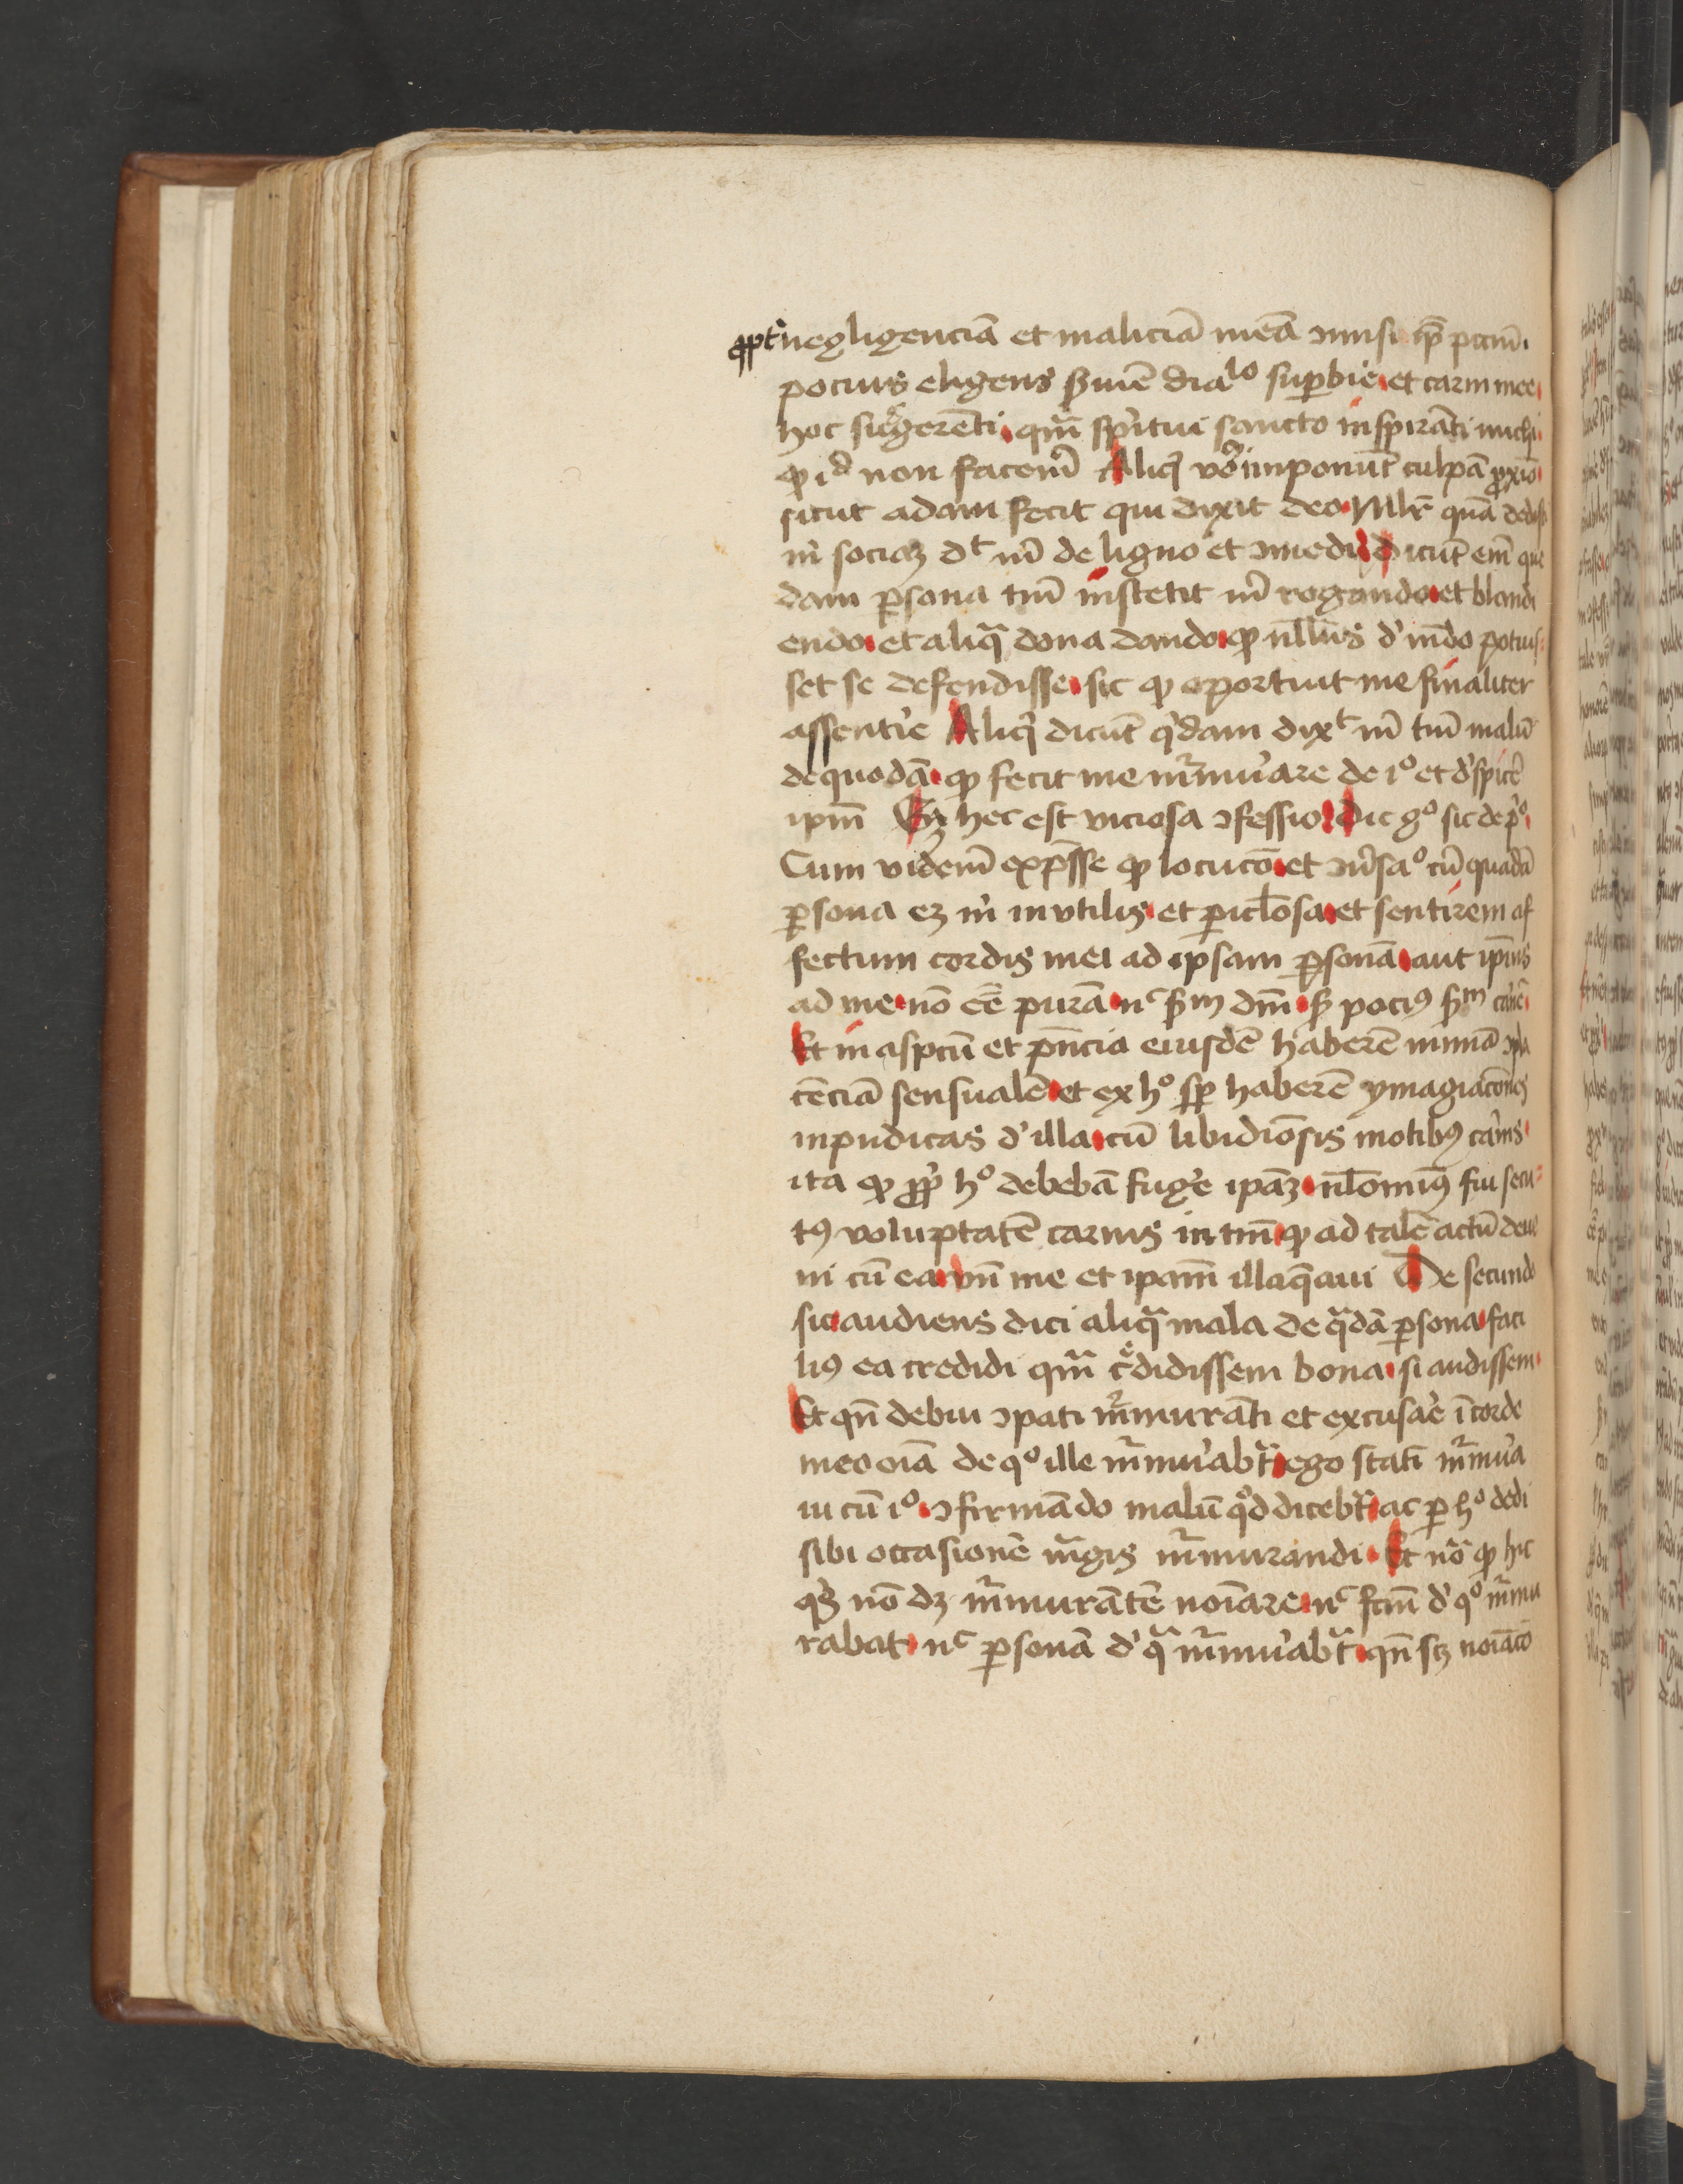 ꝓpt̾ negligenciā et maliciā meā ꝯmisi ip̄m pctm̄.
pocius eligens ꝯsentiē dia^lo sup̱bie. et carni mee.
hoc suggerēti. qm̄ sp̄itui sancto inspirāti michi
ꝙ id non facem̄ Aliqi vo imponūt culpā ꝓxīo.
sicut adam fecit qui dixit deo. Ml̄r quā dedisti
m̄ sociaꝫ dt m̄ de ligno et ꝯmedi. dicūt em̄ que
dam p̱sona tm̄ institit m̄ rogando. et blandi
endo. et aliqͣ dona dando. ꝙ nl̄lus d' mūdo potuis-
set se defendisse. sic ꝙ oportuit me finaliter
assenti̾e Aliqi dicūt qͥdam dixt m̄ tm̄ malū
de quodā. ꝙ fecit me mͬmurare de i° et d'spice̾
ipm̄ Eꝫ hec est viciosa ꝯfessio. Dic g° sic de p°.
Cum videm̄ exp̄sse ꝙ locucō. et ꝯu̾sa° cū quadā
p̱sona eꝫ m̄ inutilis. et p̱icl̄osa. et sentirem af
fectum cordis mei ad ipsam p̱sonā. aut ip̄ius
ad me. nō eē̄ purā. nc sm dm̄. sꝫ pociꝰ sm carnē.
Et in aspctū et pn̄cia eiusdē haberē nimiā ꝯpla
cēciā sensualē. et ex h° sp̱ haberē ymagīacōnes
inpudicas d' illa. cū libidīosis motibꝰ carnis.
ita ꝙ ꝓpt̾ h° debebā fuge̾ ipaꝫ. nl̄ominꝰ fui secu-
tꝰ voluptatē carnis in tm̄. ꝙ ad talē actū deue
ni cū ea. vn̄ me et ipam̄ illaq̄aui De secundo
sic. audiens dici aliqͣ mala de qͣdā p̱sona. faci
liꝰ ea credidi qm̄ c̾didissem bona. si audissem.
Et qn̄ debui ꝯpati mͬmurāti et excusa̾e ī corde
meo oīa de q° ille mͬmurabͭ. ego statī mͬmura
ui cū i°. ꝯfirmādo malū qd dicebͭ. ac p̱ h° dedi
sibi occasionē mͣgis mͬmurandi. Et nō ꝙ hic
qͥs nō dꝫ mͬmurātē noīare. nc fctm̄ d' q° mͬmu
rabat. nc p̱sonā d' qͣ mͬmurabͭ. qn̄ scꝫ noīacō